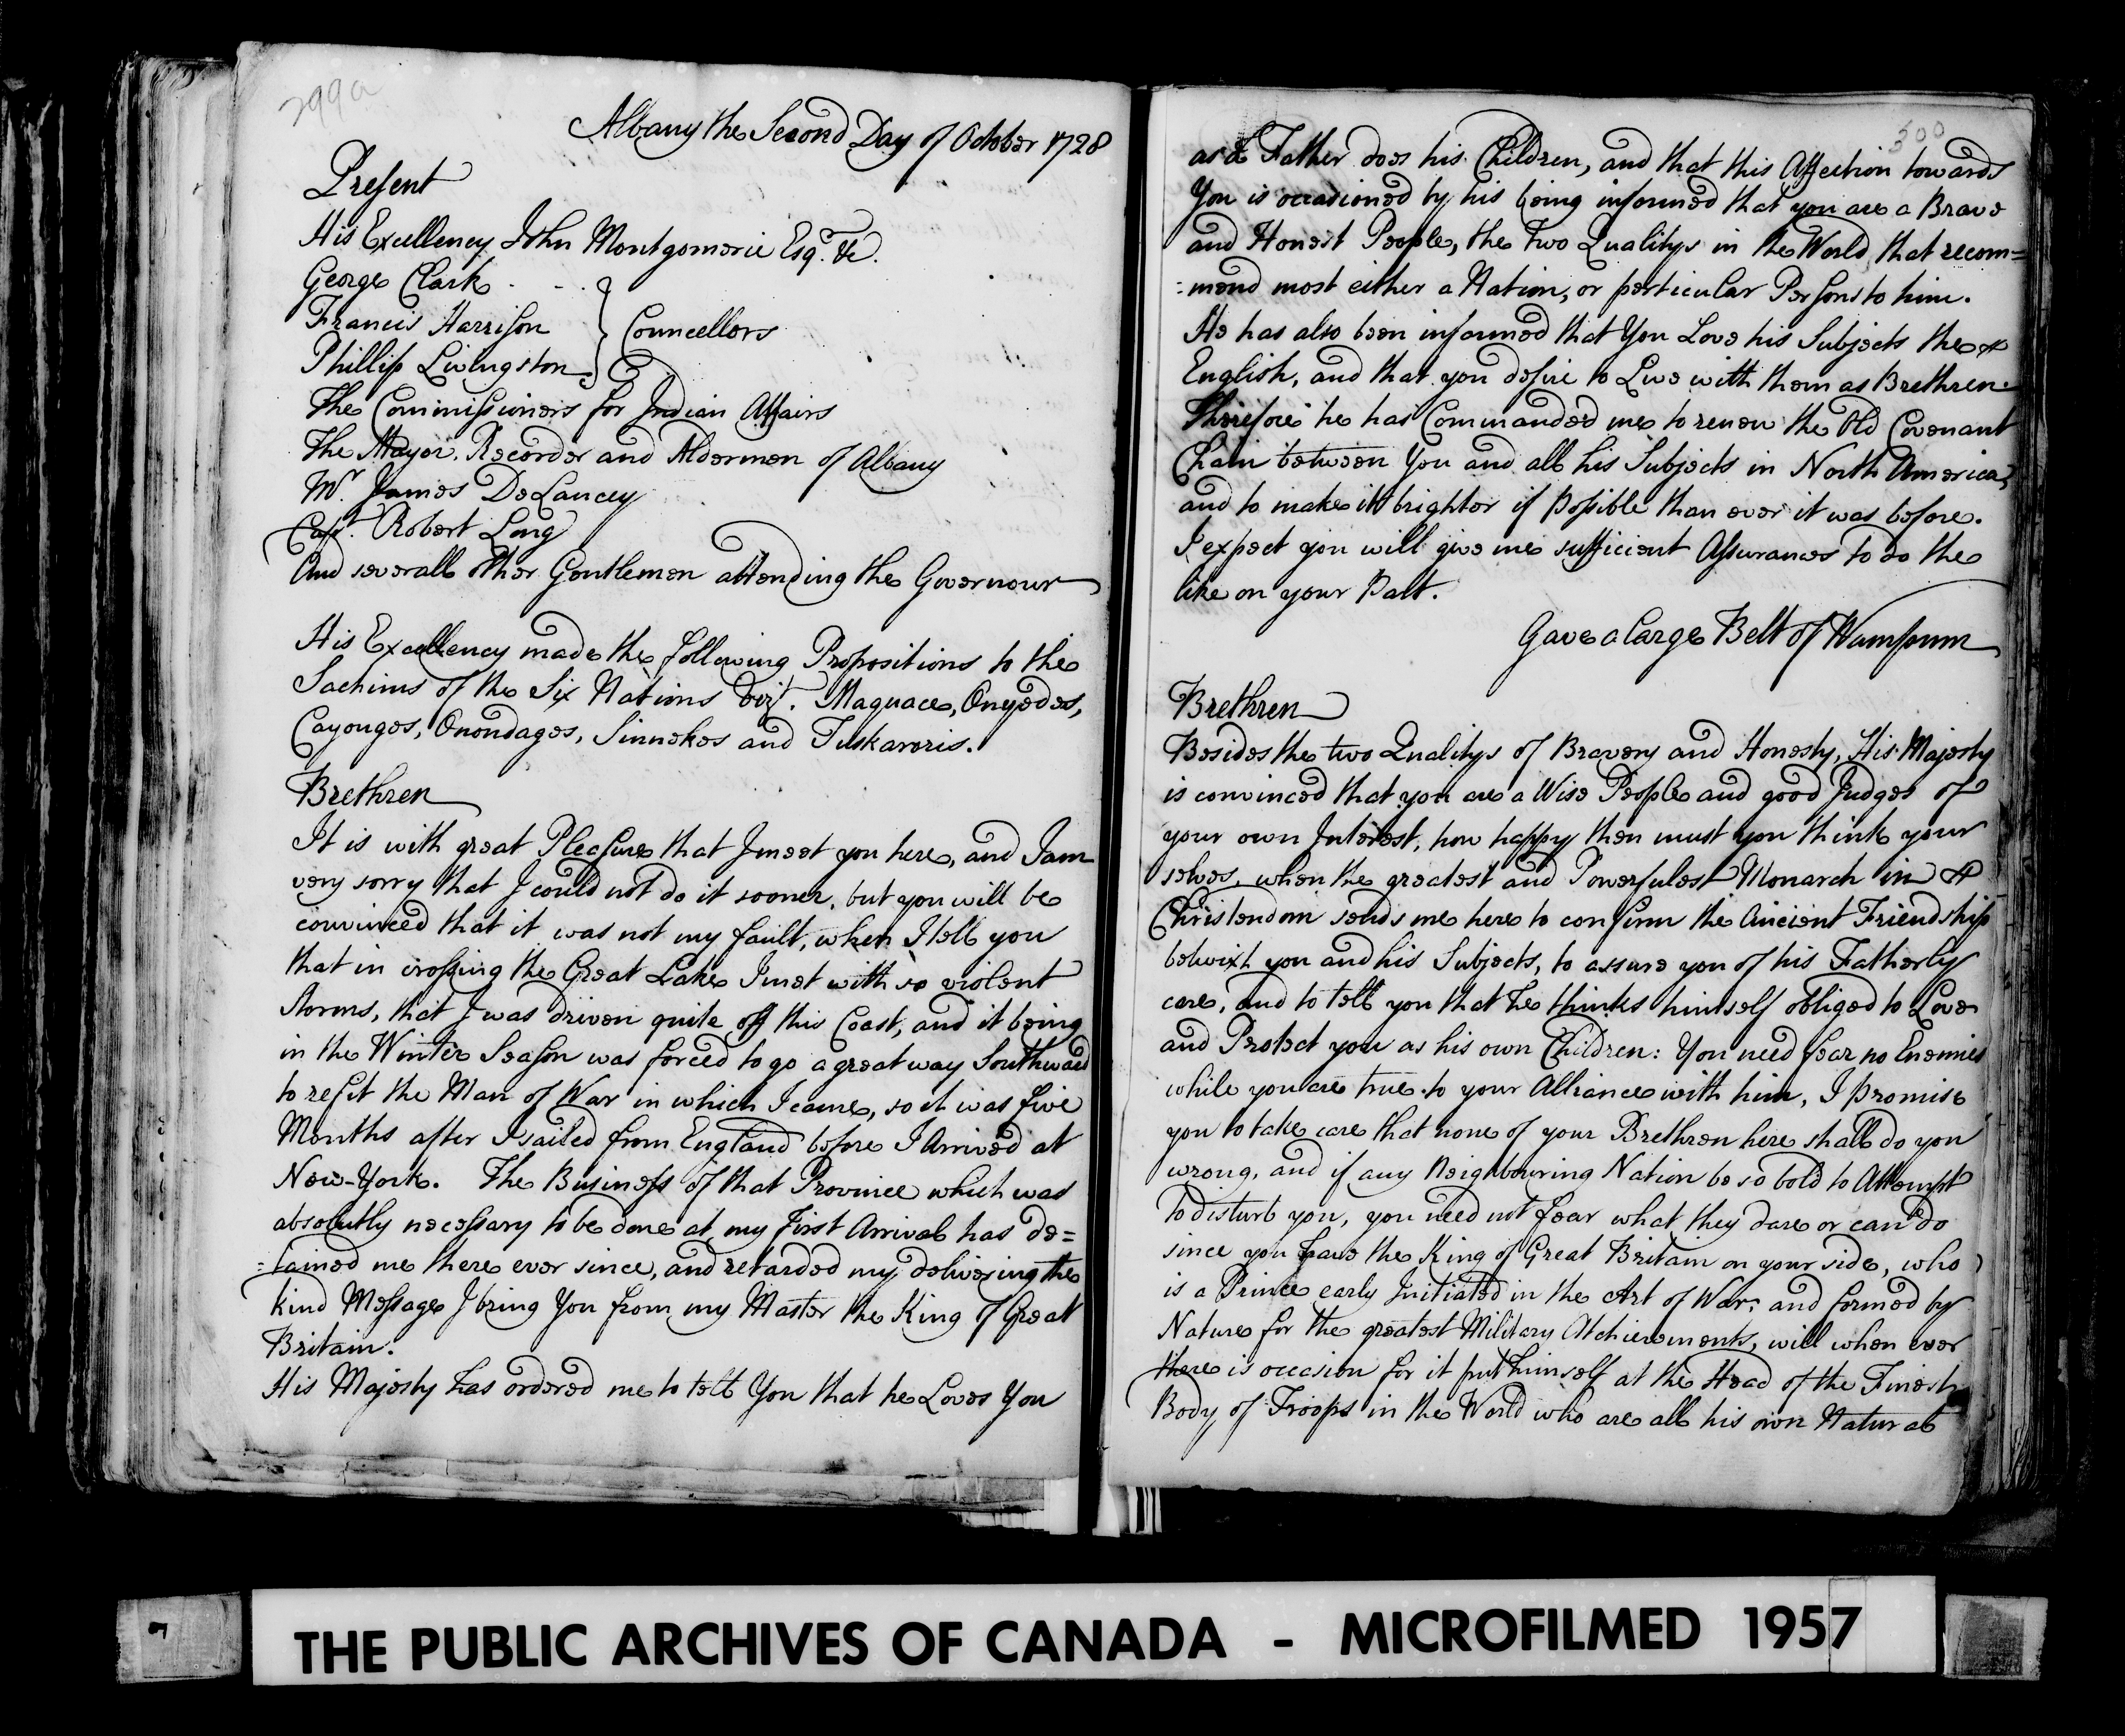 299a
Albany the Second Day of October 1728
Present
His Excellency John Montgomerie Esqr. &c.
George Clark - - -
Francis Harrison } Councellors
Phillip Livingston
The Commissioners for Indian Affairs
The Mayor, Recorder and Aldermen of Albany
Mr. James DeLancey
Capt. Robert Long
And severall other Gentlemen attending the Governour
His Excellency made the following Propositions to the
Sachims of the Six Nations Vizt. Maquace, Onyedes,
Cayouges, Onondages, Sinnekes and Tuskaroris.
Brethren
It is with great Pleasure that I meet you here, and I am
very sorry that I could not do it sooner, but you will be
convinced that it was not my fault, when I tell you
that in crossing the Great Lake I met with so violent
storms, that I was driven quite off this Coast, and it being
in the Winter Season was forced to go a great way Southward
to refit the Man of War in which I came, so it was five
Months after I sailed from England before I Arrived at
New-York. The Business of that Province which was
absolutly necessary to be done at my first Arrival has de=
=tained me there ever since, and retarded my delivering the
kind Message I bring You from my Master the King of Great
Britain.
His Majesty has ordered me to tell You that he Loves You
300
as a Father does his Children, and that this Affection towards
You is occasioned by his being informed that you are a Brave
and Honest People, the two Qualitys in the World that recom=
=mend most either a Nation, or perticular Persons to him.
He has also been informed that You Love his Subjects the
English, and that you desire to Live with them as Brethren.
Therefore he has Commanded me to renew the Old Covenant
Chain between You and all his Subjects in North America,
and to make it brighter if Possible than ever it was before.
I expect you will give me sufficient Assurances to do the
like on your Part.
Gave a large Belt of Wampum
Brethren
Besides the two Qualitys of Bravery and Honesty, His Majesty
is convinced that you are a Wise People and good Judges of
your own Interest, how happy then must you think your
selves, when the greatest and Powerfulest Monarch in
Christendom sends me here to confirm the Ancient Friendship
betwixt you and his Subjects, to assure you of his Fatherly
care, and to tell you that he thinks himself obliged to Love
and Protect you as his own Children: You need fear no Enemies
while you are true to your Alliance with him, I promise
you to take care that none of your Brethren here shall do you
wrong, and if any Neighbouring Nation be so bold to Attempt
to disturb you, you need not fear what they dare or can do
since you have the King of Great Britain on your side, who
is a Prince early Initiated in the Art of War, and formed by
Nature for the greatest Military Atchievements, will when ever
there is occasion for it put himself at the Head of the Finest
Body of Troops in the World who are all his own Natural
THE PUBLIC ARCHIVES OF CANADA - MICROFILMED 1957